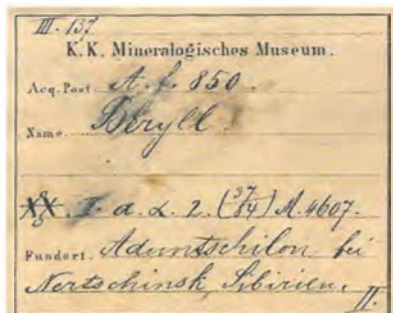 III. 137
K. K. Mineralogisches Museum.
Acq. Post A. f. 850.
Name. Beryll.
XX. T. a. L. 2. (37/84) M. 4607.
Fundort. Aduntschilon bei
Nertschinsk, Sibirien.
II.